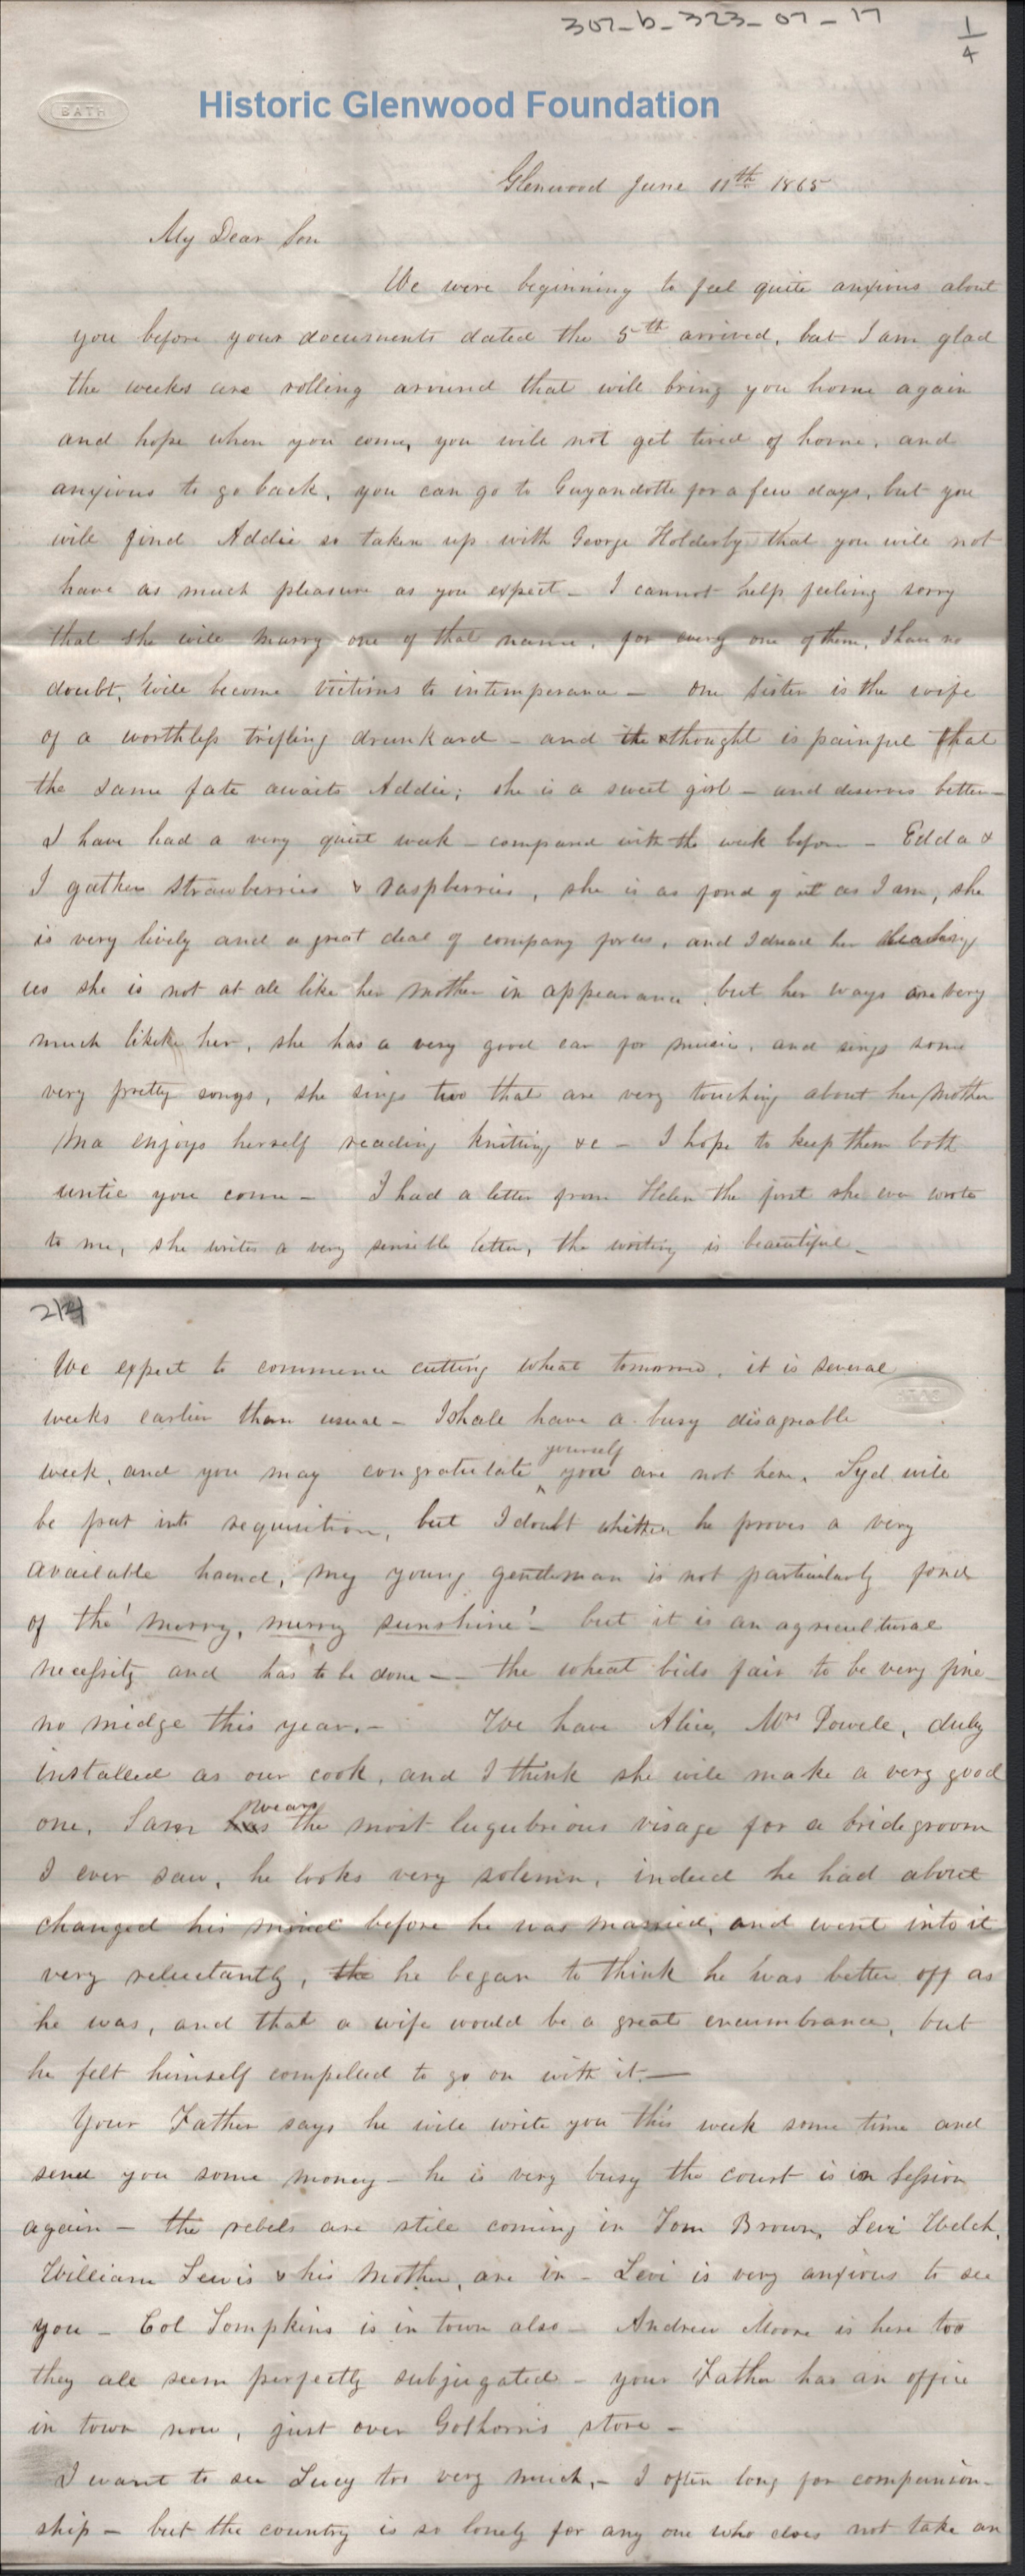 307-b-323-07-17
1/4
BATH
Historic Glenwood Foundation
Glenwood June 11th 1865
My Dear Son
We were beginning to feel quite anxious about
you before your documents dated the 5th arrived, but I am glad
the weeks are rolling around that will bring you home again
and hope when you come, you will not get tired of home, and
anxious to go back, you can go to Guyandotte for a few days, but you
will find Addie so taken up with George Holderby that you will not
have as much pleasure as you expect - I cannot help feeling sorry
that she will marry one of that name, for every one of them, I have no
doubt, will become victims to intemperance - one sister is the wife
of a worthless trifling drunkard - and the thought is painful that
the same fate awaits Addie; she is a sweet girl - and deserves better -
I have had a very quiet week - compared with the week before - Edda &
I gather strawberries & raspberries, she is as fond of it as I am, she
is very lively and a great deal of company for us, and I dread her leaving
us she is not at all like her mother in appearance, but her ways are very
much like her, she has a very good ear for music, and sings some
very pretty songs, she sings two that are very touching about her mother
Ma enjoys herself reading knitting &c - I hope to keep them both
until you come - I had a letter from Helen the first she ever wrote
to me, she writes a very sensible letter, the writing is beautiful -
2/4
We expect to commence cutting wheat tomorrow, it is several
weeks earlier than usual - I shall have a busy disagreable
week, and you may congratulate yourself you are not here, Syd will
be put into requisition, but I doubt whether he proves a very
available hand, my young gentleman is not particularly fond
of the 'merry, merry sunshine' - but it is an agricultural
necessity and has to be done - the wheat bids fair to be very fine
no midge this year. - We have Alice, Mrs Powell, duly
installed as our cook, and I think she will make a very good
one, Sam has wears the most lugubrious visage for a bridegroom
I ever saw, he looks very solemn, indeed he had about
changed his mind before he was married, and went into it
very reluctantly, the he began to think he was better off as
he was, and that a wife would be a great encumbrance, but
he felt himself compelled to go on with it. -
Your Father says he will write you this week some time and
send you some money - he is very busy the court is in session
again - the rebels are still coming in Tom Brown, Levi Welch,
William Lewis & his mother, are in - Levi is very anxious to see
you - Col Tompkins is in town also - Andrew Moore is here too
they all seem perfectly subjugated - your Father has an office
in town now, just over Goshorn's store -
I want to see Lucy too very much, - I often long for companion-
ship - but the country is so lonely for any one who does not take an